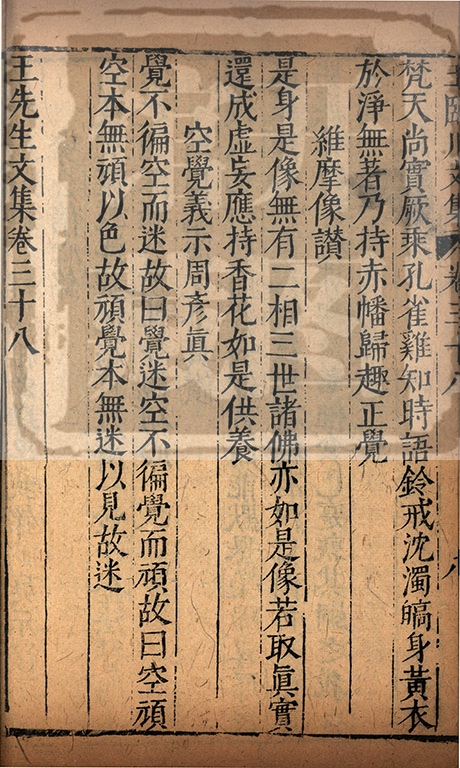 王臨川文集 卷三十八 八
梵天尚實厥乘孔雀雞知時語鈴戒沈濁皜身黃衣
於淨無著乃持赤幡歸趣正覺
維摩像讃
是身是像無有二相三世諸佛亦如是像若取眞實
還成虛妄應持香花如是供養
空覺義示周彥眞
覺不徧空而迷故曰覺迷空不徧覺而頑故曰空頑
空本無頑以色故頑覺本無迷以見故迷
王先生文集卷三十八